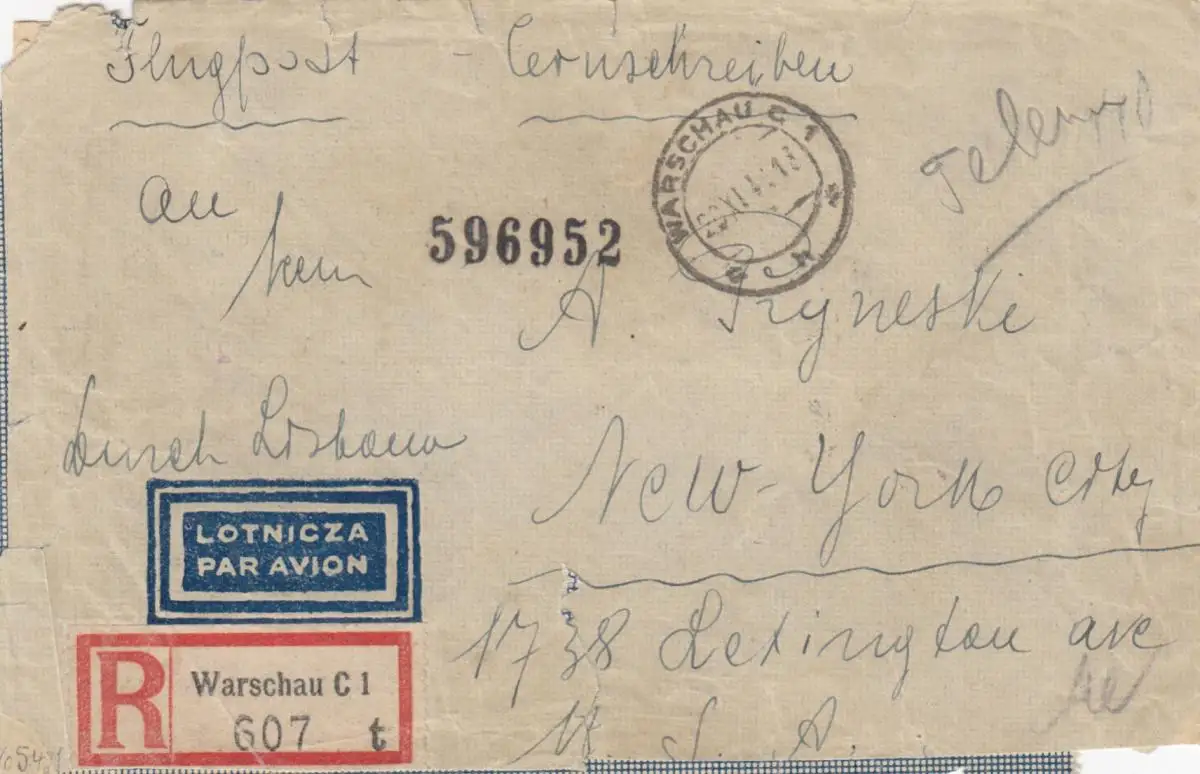 Flugpost - Cernschreiben
WARSCHAU C 1
An
Herrn
596952
A. Pryneski
Durch Lisbona
New-York City
LOTNICZA
PAR AVION
1738 Lexington ave
U. S. A.
R
Warschau C 1
607 t